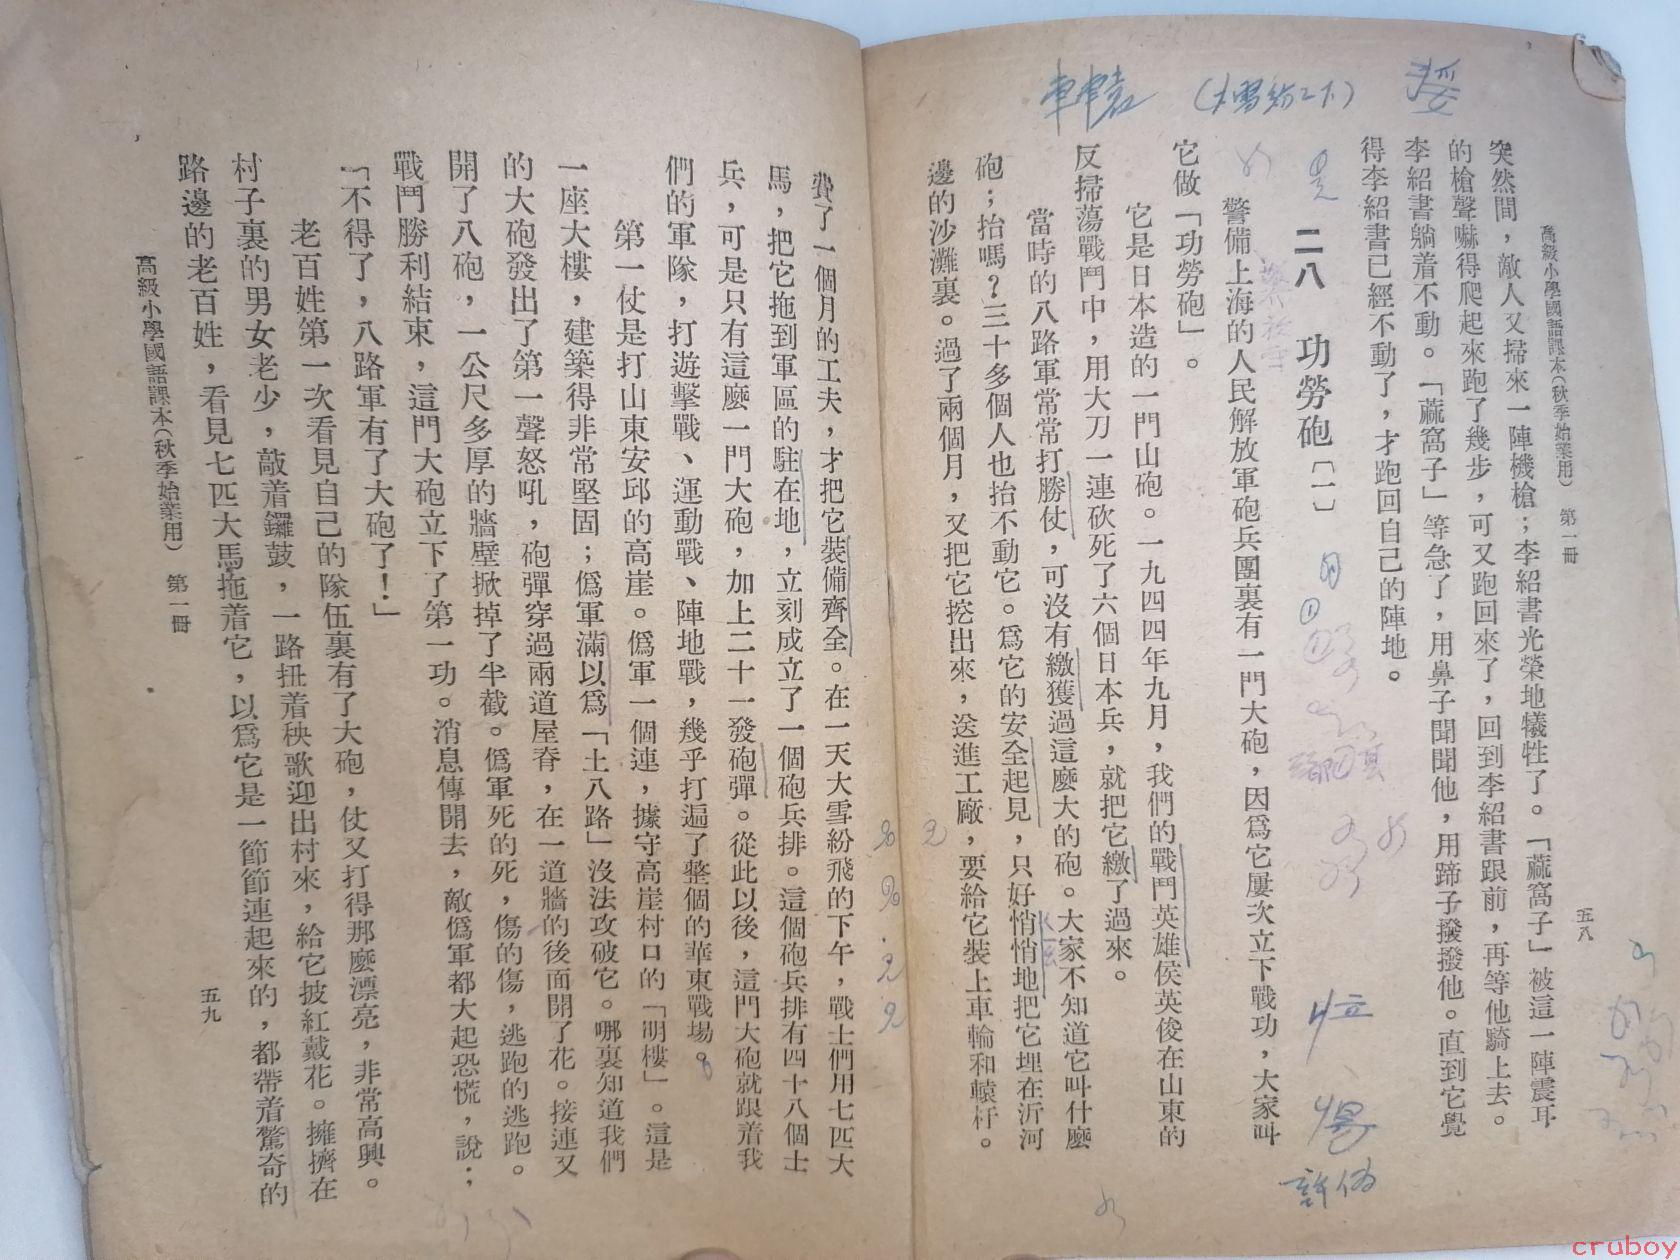 高級小學國語課本(秋季始業用) 第一冊
五八
突然間，敵人又掃來一陣機槍；李紹書光榮地犧牲了。「蔴窩子」被這一陣震耳
的槍聲嚇得爬起來跑了幾步，可又跑回來了，回到李紹書跟前，再等他騎上去。
李紹書躺着不動。「蔴窩子」等急了，用鼻子聞聞他，用蹄子撥撥他。直到它覺
得李紹書已經不動了，才跑回自己的陣地。
二八 功勞砲〔一〕
警備上海的人民解放軍砲兵團裏有一門大砲，因爲它屢次立下戰功，大家叫
它做「功勞砲」。
它是日本造的一門山砲。一九四四年九月，我們的戰鬥英雄侯英俊在山東的
反掃蕩戰鬥中，用大刀一連砍死了六個日本兵，就把它繳了過來。
當時的八路軍常常打勝仗，可沒有繳獲過這麼大的砲。大家不知道它叫什麼
砲；抬嗎？三十多個人也抬不動它。爲它的安全起見，只好悄悄地把它埋在沂河
邊的沙灘裏。過了兩個月，又把它挖出來，送進工廠，要給它裝上車輪和轅杆。
費了一個月的工夫，才把它裝備齊全。在一天大雪紛飛的下午，戰士們用七匹大
馬，把它拖到軍區的駐在地，立刻成立了一個砲兵排。這個砲兵排有四十八個士
兵，可是只有這麼一門大砲，加上二十一發砲彈。從此以後，這門大砲就跟着我
們的軍隊，打遊擊戰、運動戰、陣地戰，幾乎打遍了整個的華東戰場。
第一仗是打山東安邱的高崖。僞軍一個連，據守高崖村口的「明樓」。這是
一座大樓，建築得非常堅固；僞軍滿以爲「土八路」沒法攻破它。哪裏知道我們
的大砲發出了第一聲怒吼，砲彈穿過兩道屋脊，在一道牆的後面開了花。接連又
開了八砲，一公尺多厚的牆壁掀掉了半截。僞軍死的死，傷的傷，逃跑的逃跑。
戰鬥勝利結束，這門大砲立下了第一功。消息傳開去，敵僞軍都大起恐慌，說：
「不得了，八路軍有了大砲了！」
老百姓第一次看見自己的隊伍裏有了大砲，仗又打得那麼漂亮，非常高興。
村子裏的男女老少，敲着鑼鼓，一路扭着秧歌迎出村來，給它披紅戴花。擁擠在
路邊的老百姓，看見七匹大馬拖着它，以爲它是一節節連起來的，都帶着驚奇的
高級小學國語課本(秋季始業用) 第一冊
五九
cruboy